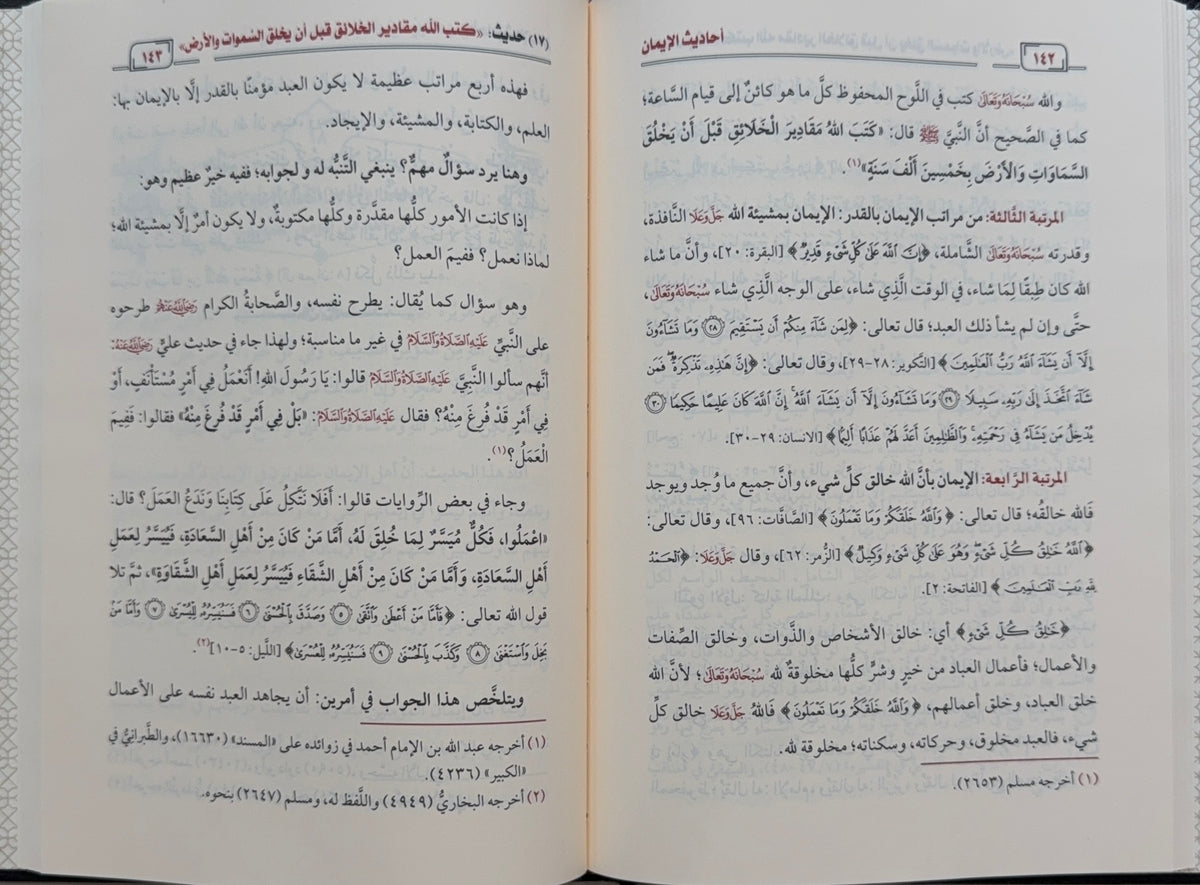 أحاديث الإيمان
١٤٢
والله سُبْحَانَهُ وَتَعَالَى كتب في اللَّوح المحفوظ كلَّ ما هو كائنٌ إلى قيام السَّاعة؛
كما في الصَّحيح أنَّ النَّبيَّ ﷺ قال: «كَتَبَ اللهُ مَقَادِيرَ الْخَلَائِقِ قَبْلَ أَنْ يَخْلُقَ
السَّمَاوَاتِ وَالْأَرْضَ بِخَمْسِينَ أَلْفَ سَنَةٍ»(١).
المرتبة الثَّالثة: من مراتب الإيمان بالقدر: الإيمان بمشيئة الله جَلَّ وَعَلَا النَّافذة،
وقدرته سُبْحَانَهُ وَتَعَالَى الشَّاملة، ﴿إِنَّ ٱللَّهَ عَلَىٰ كُلِّ شَيْءٍ قَدِيرٌ﴾ [البقرة: ٢٠]، وأنَّ ما شاء
الله كان طِبقًا لِمَا شاء، في الوقت الَّذي شاء، على الوجه الَّذي شاء سُبْحَانَهُ وَتَعَالَى،
حتَّى وإن لم يشأ ذلك العبد؛ قال تعالى: ﴿لِمَن شَآءَ مِنكُمْ أَن يَسْتَقِيمَ ٢٨ وَمَا تَشَآءُونَ
إِلَّآ أَن يَشَآءَ ٱللَّهُ رَبُّ ٱلْعَٰلَمِينَ﴾ [التكوير: ٢٨-٢٩]، وقال تعالى: ﴿إِنَّ هَٰذِهِۦ تَذْكِرَةٌ ۖ فَمَن
شَآءَ ٱتَّخَذَ إِلَىٰ رَبِّهِۦ سَبِيلًا ٢٩ وَمَا تَشَآءُونَ إِلَّآ أَن يَشَآءَ ٱللَّهُ ۚ إِنَّ ٱللَّهَ كَانَ عَلِيمًا حَكِيمًا ٣٠
يُدْخِلُ مَن يَشَآءُ فِى رَحْمَتِهِۦ ۚ وَٱلظَّٰلِمِينَ أَعَدَّ لَهُمْ عَذَابًا أَلِيمًۢا﴾ [الانسان: ٢٩-٣٠].
المرتبة الرَّابعة: الإيمان بأنَّ الله خالق كلِّ شيء، وأنَّ جميع ما وُجد ويوجد
فالله خالقُه؛ قال تعالى: ﴿وَٱللَّهُ خَلَقَكُمْ وَمَا تَعْمَلُونَ﴾ [الصَّافَّات: ٩٦]، وقال تعالى:
﴿ٱللَّهُ خَٰلِقُ كُلِّ شَىْءٍ ۖ وَهُوَ عَلَىٰ كُلِّ شَىْءٍ وَكِيلٌ﴾ [الزُّمر: ٦٢]، وقال جَلَّ وَعَلَا: ﴿ٱلْحَمْدُ
لِلَّهِ رَبِّ ٱلْعَٰلَمِينَ﴾ [الفاتحة: ٢].
﴿خَٰلِقُ كُلِّ شَىْءٍ﴾ أي: خالق الأشخاص والذَّوات، وخالق الصِّفات
والأعمال؛ فأعمال العباد من خيرٍ وشرٍّ كلُّها مخلوقةٌ لله سُبْحَانَهُ وَتَعَالَى؛ لأنَّ الله
خلق العباد، وخلق أعمالهم، ﴿وَٱللَّهُ خَلَقَكُمْ وَمَا تَعْمَلُونَ﴾ فَاللهُ جَلَّ وَعَلَا خالق كلِّ
شيء، فالعبد مخلوق، وحركاته، وسكناته؛ مخلوقة لله.
(١) أخرجه مسلم (٢٦٥٣).
(١٧) حديث: «كتب الله مقادير الخلائق قبل أن يخلق السَّموات والأرض»
١٤٣
فهذه أربع مراتب عظيمة لا يكون العبد مؤمنًا بالقدر إلَّا بالإيمان بها:
العلم، والكتابة، والمشيئة، والإيجاد.
وهنا يرد سؤالٌ مهمٌّ؟ ينبغي التَّنبُّه له ولجوابه؛ ففيه خيرٌ عظيم وهو:
إذا كانت الأمور كلُّها مقدَّرة وكلُّها مكتوبةٌ، ولا يكون أمرٌ إلَّا بمشيئة الله؛
لماذا نعمل؟ ففيمَ العمل؟
وهو سؤال كما يُقال: يطرح نفسه، والصَّحابةُ الكرام رَضِيَ اللهُ عَنْهُم طرحوه
على النَّبيِّ عَلَيْهِ الصَّلَاةُ وَالسَّلَامُ في غير ما مناسبة؛ ولهذا جاء في حديث عليٍّ رَضِيَ اللهُ عَنْهُ:
أنَّهم سألوا النَّبيَّ عَلَيْهِ الصَّلَاةُ وَالسَّلَامُ قالوا: يَا رَسُولَ اللهِ! أَنَعْمَلُ فِي أَمْرٍ مُسْتَأْنَفٍ، أَوْ
فِي أَمْرٍ قَدْ فُرِغَ مِنْهُ؟ فقال عَلَيْهِ الصَّلَاةُ وَالسَّلَامُ: «بَلْ فِي أَمْرٍ قَدْ فُرِغَ مِنْهُ» فقالوا: فَفِيمَ
الْعَمَلُ؟(١).
وجاء في بعض الرِّوايات قالوا: أَفَلَا نَتَّكِلُ عَلَى كِتَابِنَا وَنَدَعُ العَمَلَ؟ قال:
«اعْمَلُوا، فَكُلٌّ مُيَسَّرٌ لِمَا خُلِقَ لَهُ، أَمَّا مَنْ كَانَ مِنْ أَهْلِ السَّعَادَةِ، فَيُيَسَّرُ لِعَمَلِ
أَهْلِ السَّعَادَةِ، وَأَمَّا مَنْ كَانَ مِنْ أَهْلِ الشَّقَاءِ فَيُيَسَّرُ لِعَمَلِ أَهْلِ الشَّقَاوَةِ»، ثمَّ تلا
قول الله تعالى: ﴿فَأَمَّا مَنْ أَعْطَىٰ وَٱتَّقَىٰ ٥ وَصَدَّقَ بِٱلْحُسْنَىٰ ٦ فَسَنُيَسِّرُهُۥ لِلْيُسْرَىٰ ٧ وَأَمَّا مَنۢ
بَخِلَ وَٱسْتَغْنَىٰ ٨ وَكَذَّبَ بِٱلْحُسْنَىٰ ٩ فَسَنُيَسِّرُهُۥ لِلْعُسْرَىٰ﴾ [اللَّيل: ٥-١٠](٢).
ويتلخَّص هذا الجواب في أمرين: أن يجاهد العبد نفسه على الأعمال
(١) أخرجه عبد الله بن الإمام أحمد في زوائده على «المسند» (١٦٦٣٠)، والطَّبرانيُّ في
«الكبير» (٤٢٣٦).
(٢) أخرجه البخاريُّ (٤٩٤٩) واللَّفظ له، ومسلم (٢٦٤٧) بنحوه.